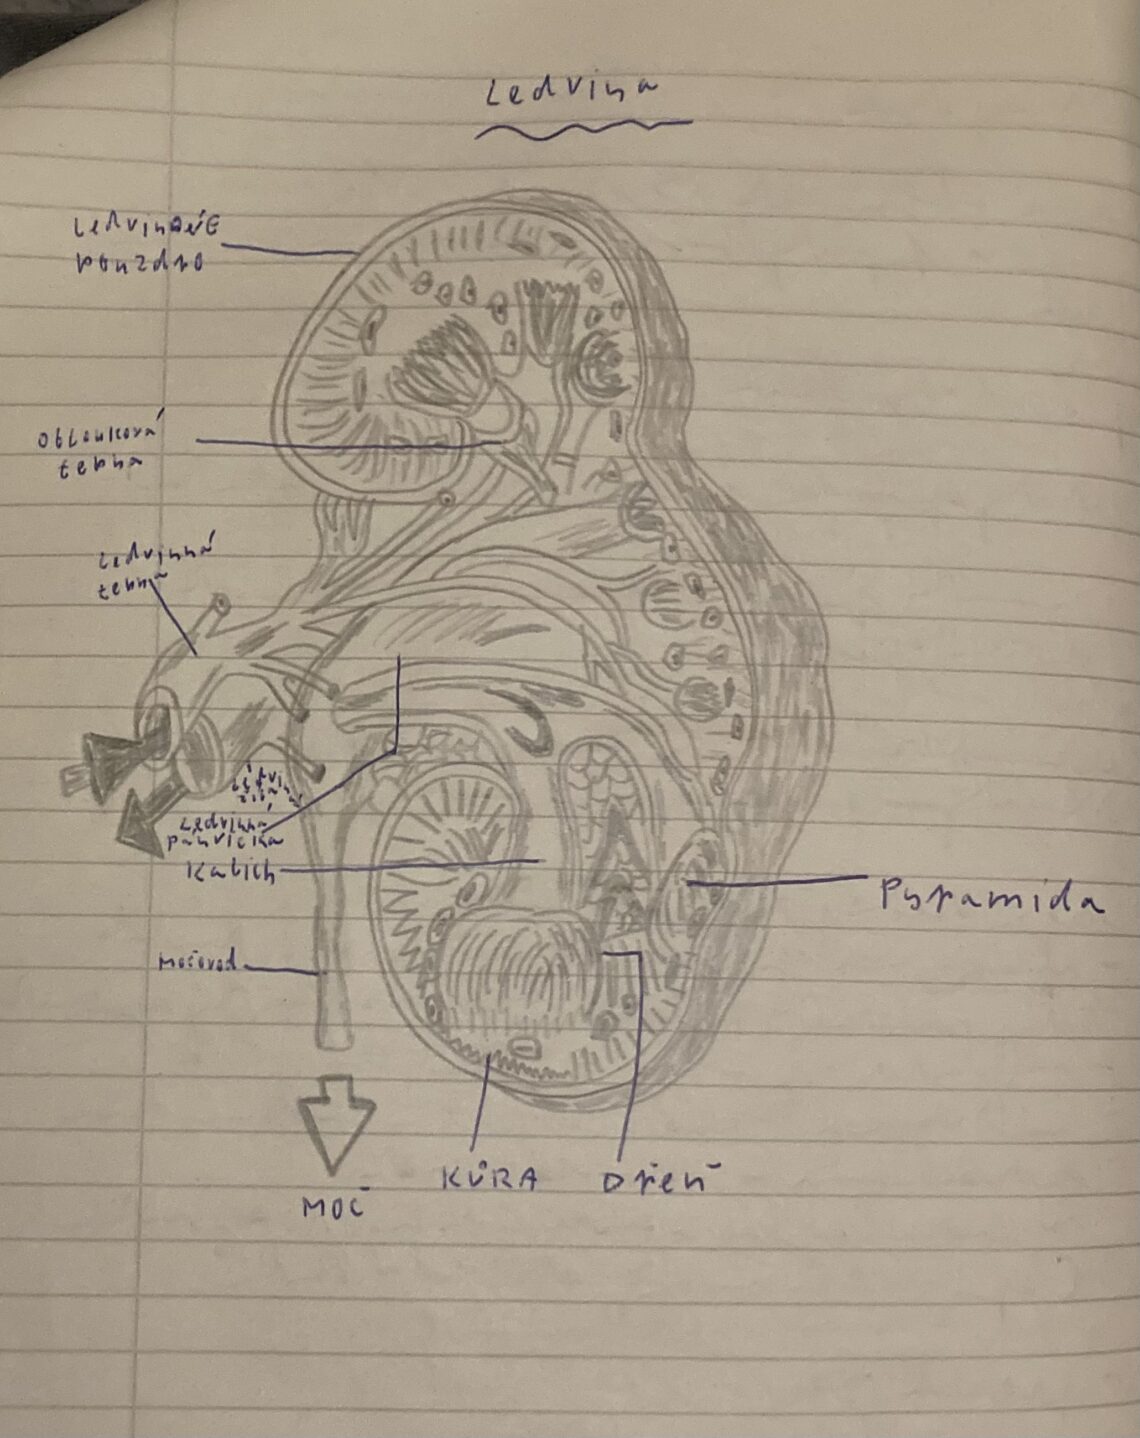 Ledvina
Ledvinové
pouzdro
Oblouková
tepna
Ledvinná
tepna
Ledvinná
pánvička
Kalich
Pyramida
Močovod
KŮRA Dřeň
MOČ